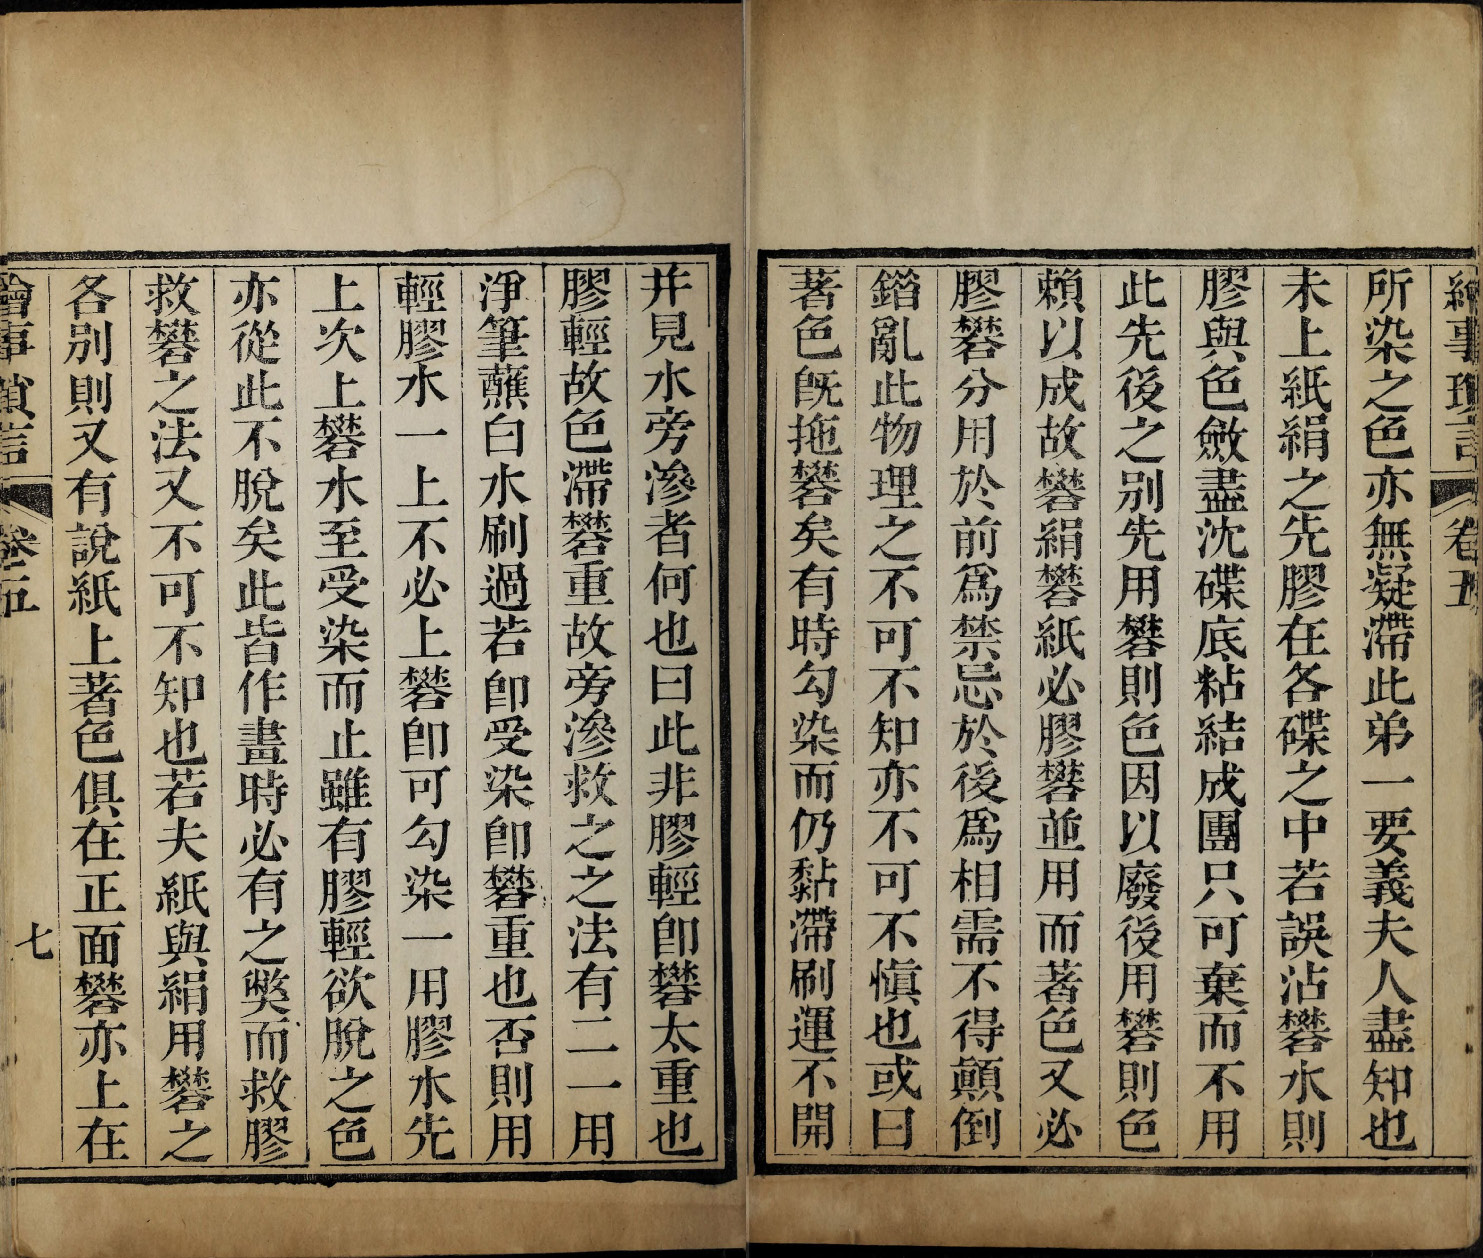 繪事瑣言 卷五
所染之色亦無凝滯此弟一要義夫人盡知也
未上紙絹之先膠在各碟之中若誤沾礬水則
膠與色斂盡沈碟底粘結成團只可棄而不用
此先後之別先用礬則色因以廢後用礬則色
賴以成故礬絹礬紙必膠礬並用而著色又必
膠礬分用於前爲禁忌於後爲相需不得顚倒
錯亂此物理之不可不知亦不可不愼也或曰
著色旣拖礬矣有時勾染而仍黏滯刷運不開
并見水旁滲者何也曰此非膠輕卽礬太重也
膠輕故色滯礬重故旁滲救之之法有二一用
淨筆蘸白水刷過若卽受染卽礬重也否則用
輕膠水一上不必上礬卽可勾染一用膠水先
上次上礬水至受染而止雖有膠輕欲脫之色
亦從此不脫矣此皆作畫時必有之獘而救膠
救礬之法又不可不知也若夫紙與絹用礬之
各別則又有說紙上著色俱在正面礬亦上在
繪事瑣言 卷五 七